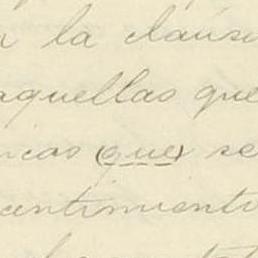 a la cláusu
aquellas que
icas (que) se
antimiento